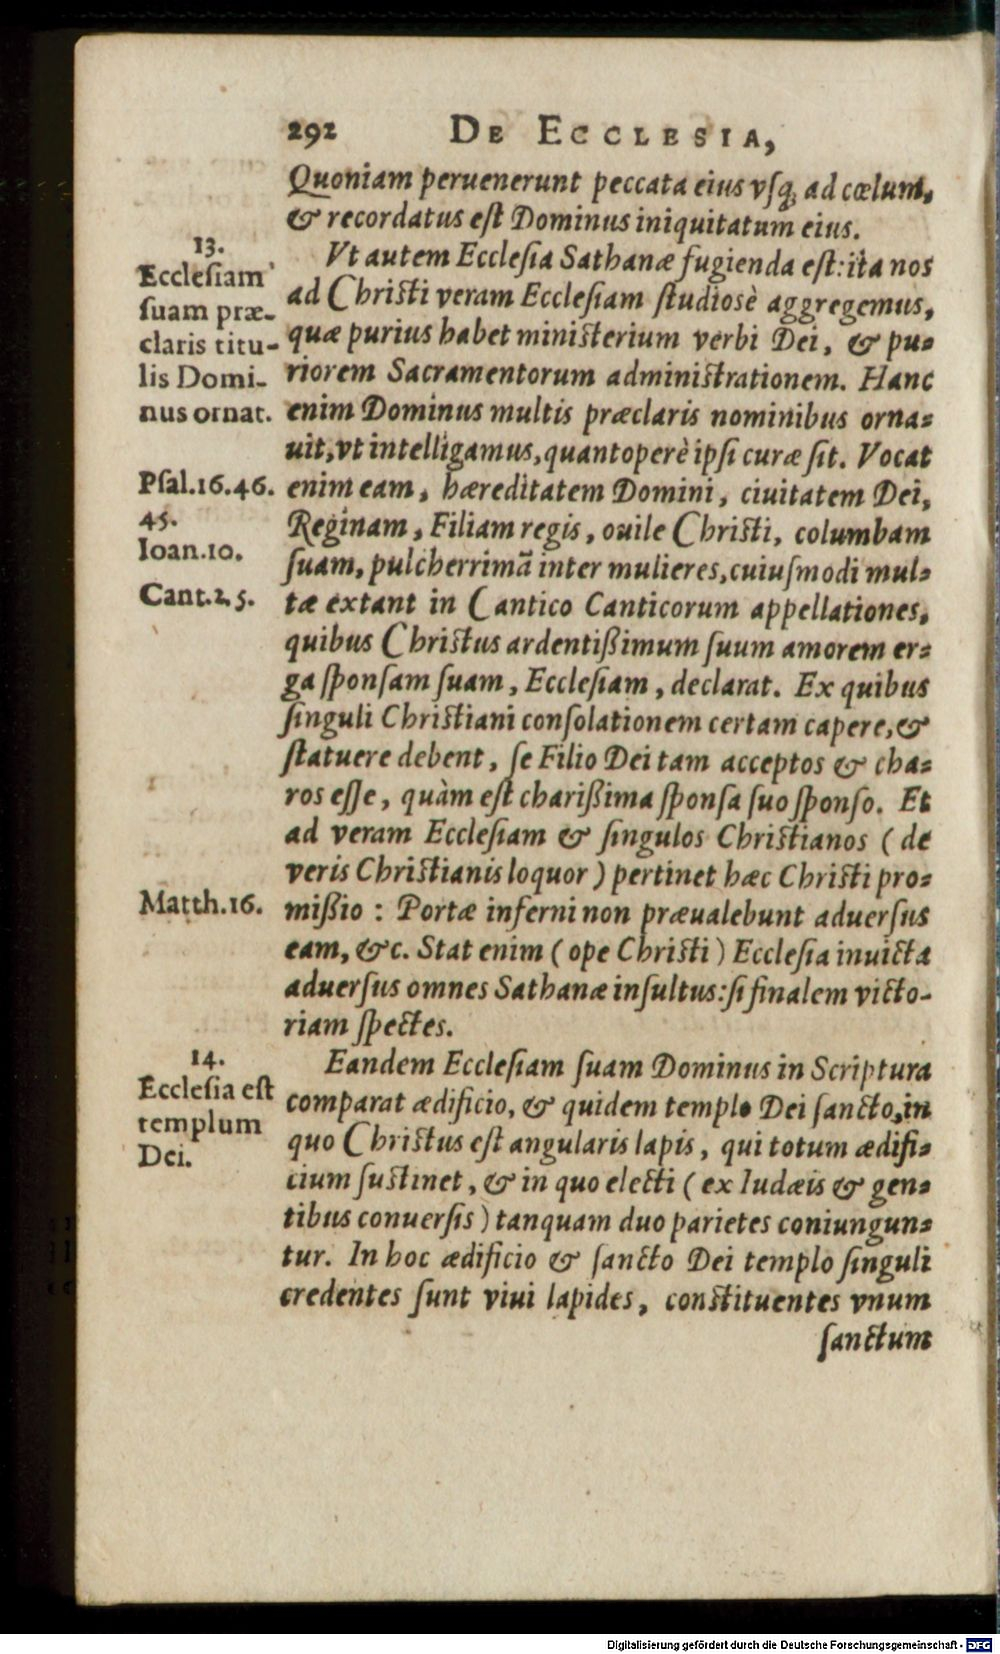 292 DE ECCLESIA,
Quoniam peruenerunt peccata eius vſq; ad cœlum,
& recordatus eſt Dominus iniquitatum eius.
13.
Eccleſiam
ſuam præ-
claris titu-
lis Domi-
nus ornat.
Vt autem Eccleſia Sathanæ fugienda eſt: ita nos
ad Chriſti veram Eccleſiam ſtudiosè aggregemus,
quæ purius habet miniſterium verbi Dei, & pu-
riorem Sacramentorum adminiſtrationem. Hanc
enim Dominus multis præclaris nominibus orna-
uit, vt intelligamus, quantoperè ipſi curæ ſit. Vocat
Pſal.16.46.
45.
Ioan.10.
Cant.2.5.
enim eam, hæreditatem Domini, ciuitatem Dei,
Reginam, Filiam regis, ouile Chriſti, columbam
ſuam, pulcherrimā inter mulieres, cuiuſmodi mul-
tæ extant in Cantico Canticorum appellationes,
quibus Chriſtus ardentißimum ſuum amorem er-
ga ſponſam ſuam, Eccleſiam, declarat. Ex quibus
ſinguli Chriſtiani conſolationem certam capere, &
ſtatuere debent, ſe Filio Dei tam acceptos & cha-
ros eſſe, quàm eſt charißima ſponſa ſuo ſponſo. Et
ad veram Eccleſiam & ſingulos Chriſtianos (de
veris Chriſtianis loquor) pertinet hæc Chriſti pro-
Matth.16.
mißio : Portæ inferni non præualebunt aduerſus
eam, &c. Stat enim (ope Chriſti) Eccleſia inuicta
aduerſus omnes Sathanæ inſultus: ſi finalem victo-
riam ſpectes.
14.
Eccleſia eſt
templum
Dei.
Eandem Eccleſiam ſuam Dominus in Scriptura
comparat ædificio, & quidem templo Dei ſancto, in
quo Chriſtus eſt angularis lapis, qui totum ædifi-
cium ſuſtinet, & in quo electi (ex Iudæis & gen-
tibus conuerſis) tanquam duo parietes coniungun-
tur. In hoc ædificio & ſancto Dei templo ſinguli
credentes ſunt viui lapides, conſtituentes vnum
ſanctum
Digitalisierung gefördert durch die Deutsche Forschungsgemeinschaft - DFG